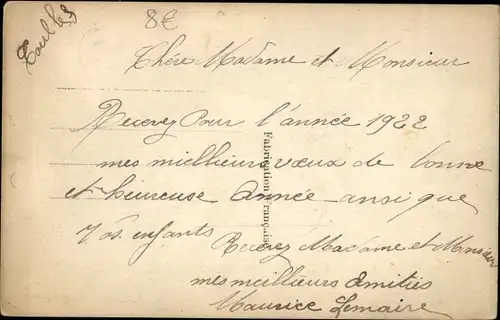 8€
Chère Madame et Monsieur
Recevez Pour l'année 1922
mes miellieurs vœux de bonne
et héureuse année ansi que
Vos enfants
Recevez Madame et Monsieur
mes meillieurs amitiés
Maurice Lemaire
Fabrication Française